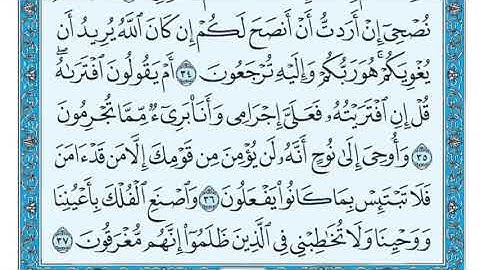 نُصْحِىٓ إِنْ أَرَدتُّ أَنْ أَنصَحَ لَكُمْ إِن كَانَ ٱللَّهُ يُرِيدُ أَن
يُغْوِيَكُمْ ۚ هُوَ رَبُّكُمْ وَإِلَيْهِ تُرْجَعُونَ ٣٤ أَمْ يَقُولُونَ ٱفْتَرَىٰهُ ۖ
قُلْ إِنِ ٱفْتَرَيْتُهُۥ فَعَلَىَّ إِجْرَامِى وَأَنَا۠ بَرِىٓءٌ مِّمَّا تُجْرِمُونَ
٣٥ وَأُوحِىَ إِلَىٰ نُوحٍ أَنَّهُۥ لَن يُؤْمِنَ مِن قَوْمِكَ إِلَّا مَن قَدْ ءَامَنَ
فَلَا تَبْتَئِسْ بِمَا كَانُوا۟ يَفْعَلُونَ ٣٦ وَٱصْنَعِ ٱلْفُلْكَ بِأَعْيُنِنَا
وَوَحْيِنَا وَلَا تُخَٰطِبْنِى فِى ٱلَّذِينَ ظَلَمُوٓا۟ إِنَّهُم مُّغْرَقُونَ ٣٧